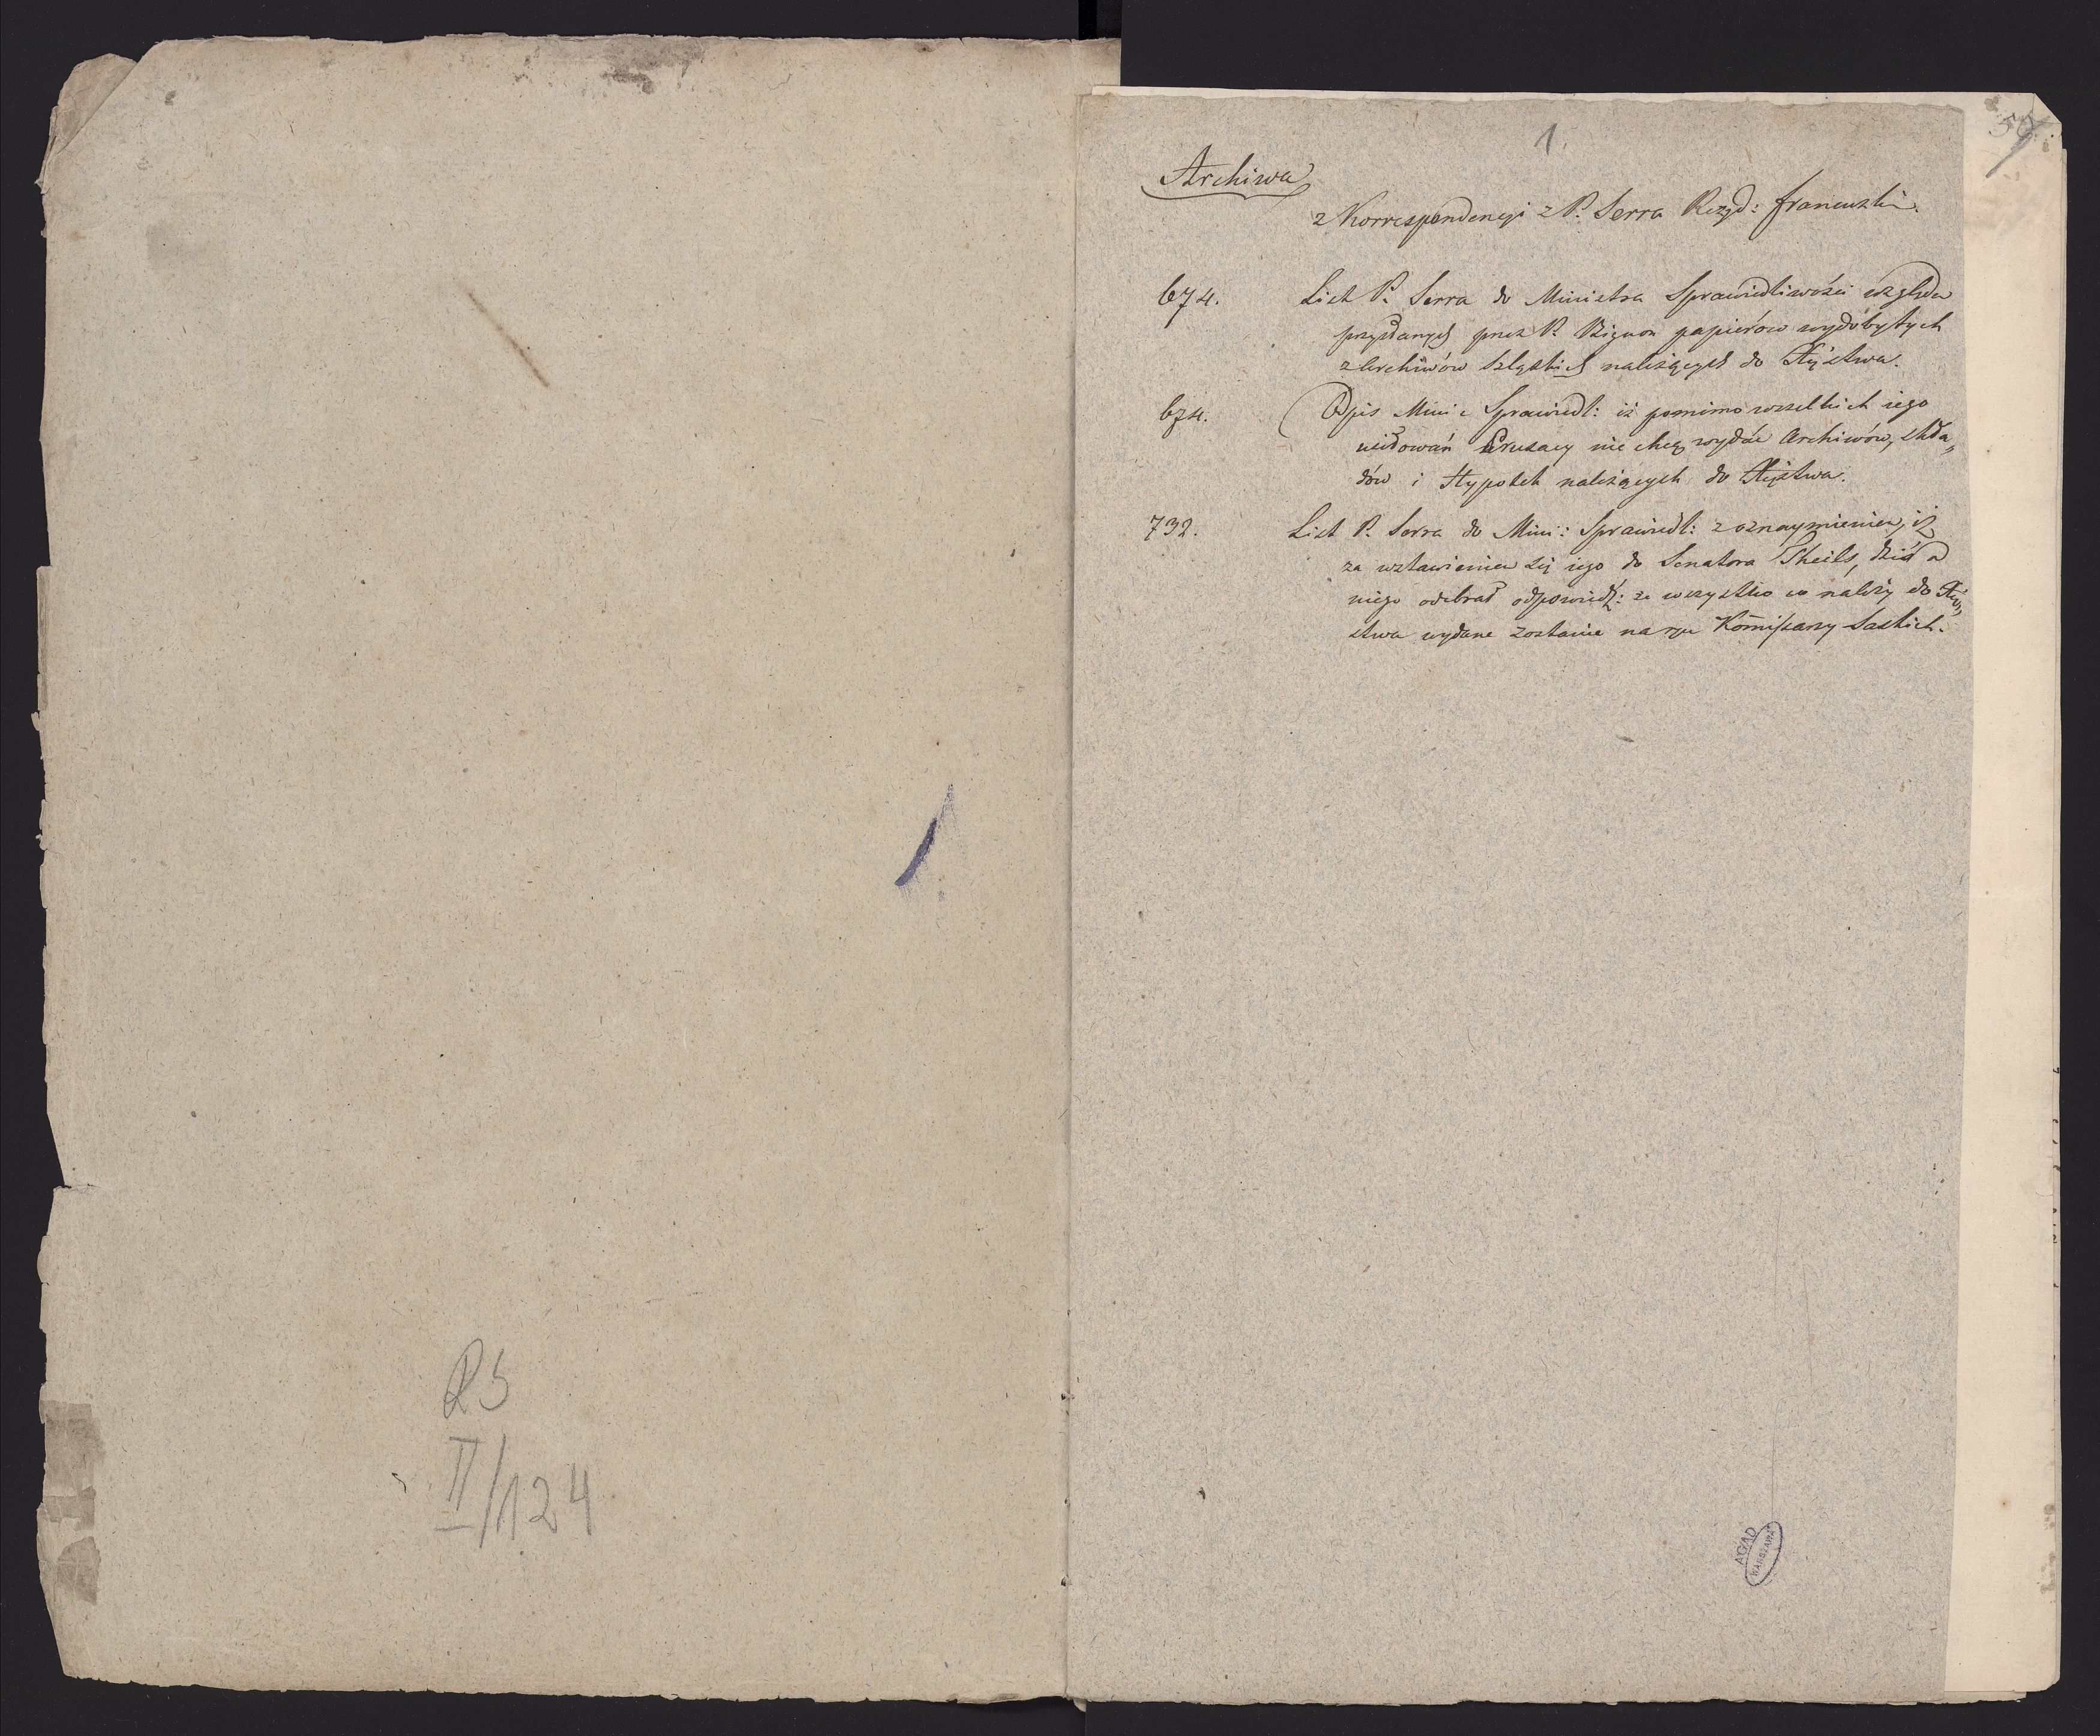 RS
II/124
1.
57
Archiwa
z Korrespondencyi z P. Serra Rezyd: francuzkim.
674. List P. Serra do Ministra Sprawiedliwości względem
przysłanych przez P. Bignon papierów wydobytych
z Archiwów Szląskich należących do Xięstwa.
674. Odpis Mini: Sprawiedl: iż pomimo wszelkich iego
usiłowań Prusacy nie chcą wydać Archiwów, skła„
dów i Hypotek należących do Xięstwa.
732. List P. Serra do Mini: Sprawiedl: z oznaymieniem, iż
za wstawieniem się iego do Senatora Theils, dziś od
niego odebrał odpowiedź: że wszystko co należy do Xię„
stwa wydane zostanie na ręce Kom̄issarzy Saskich.
AGAD
WARSZAWA